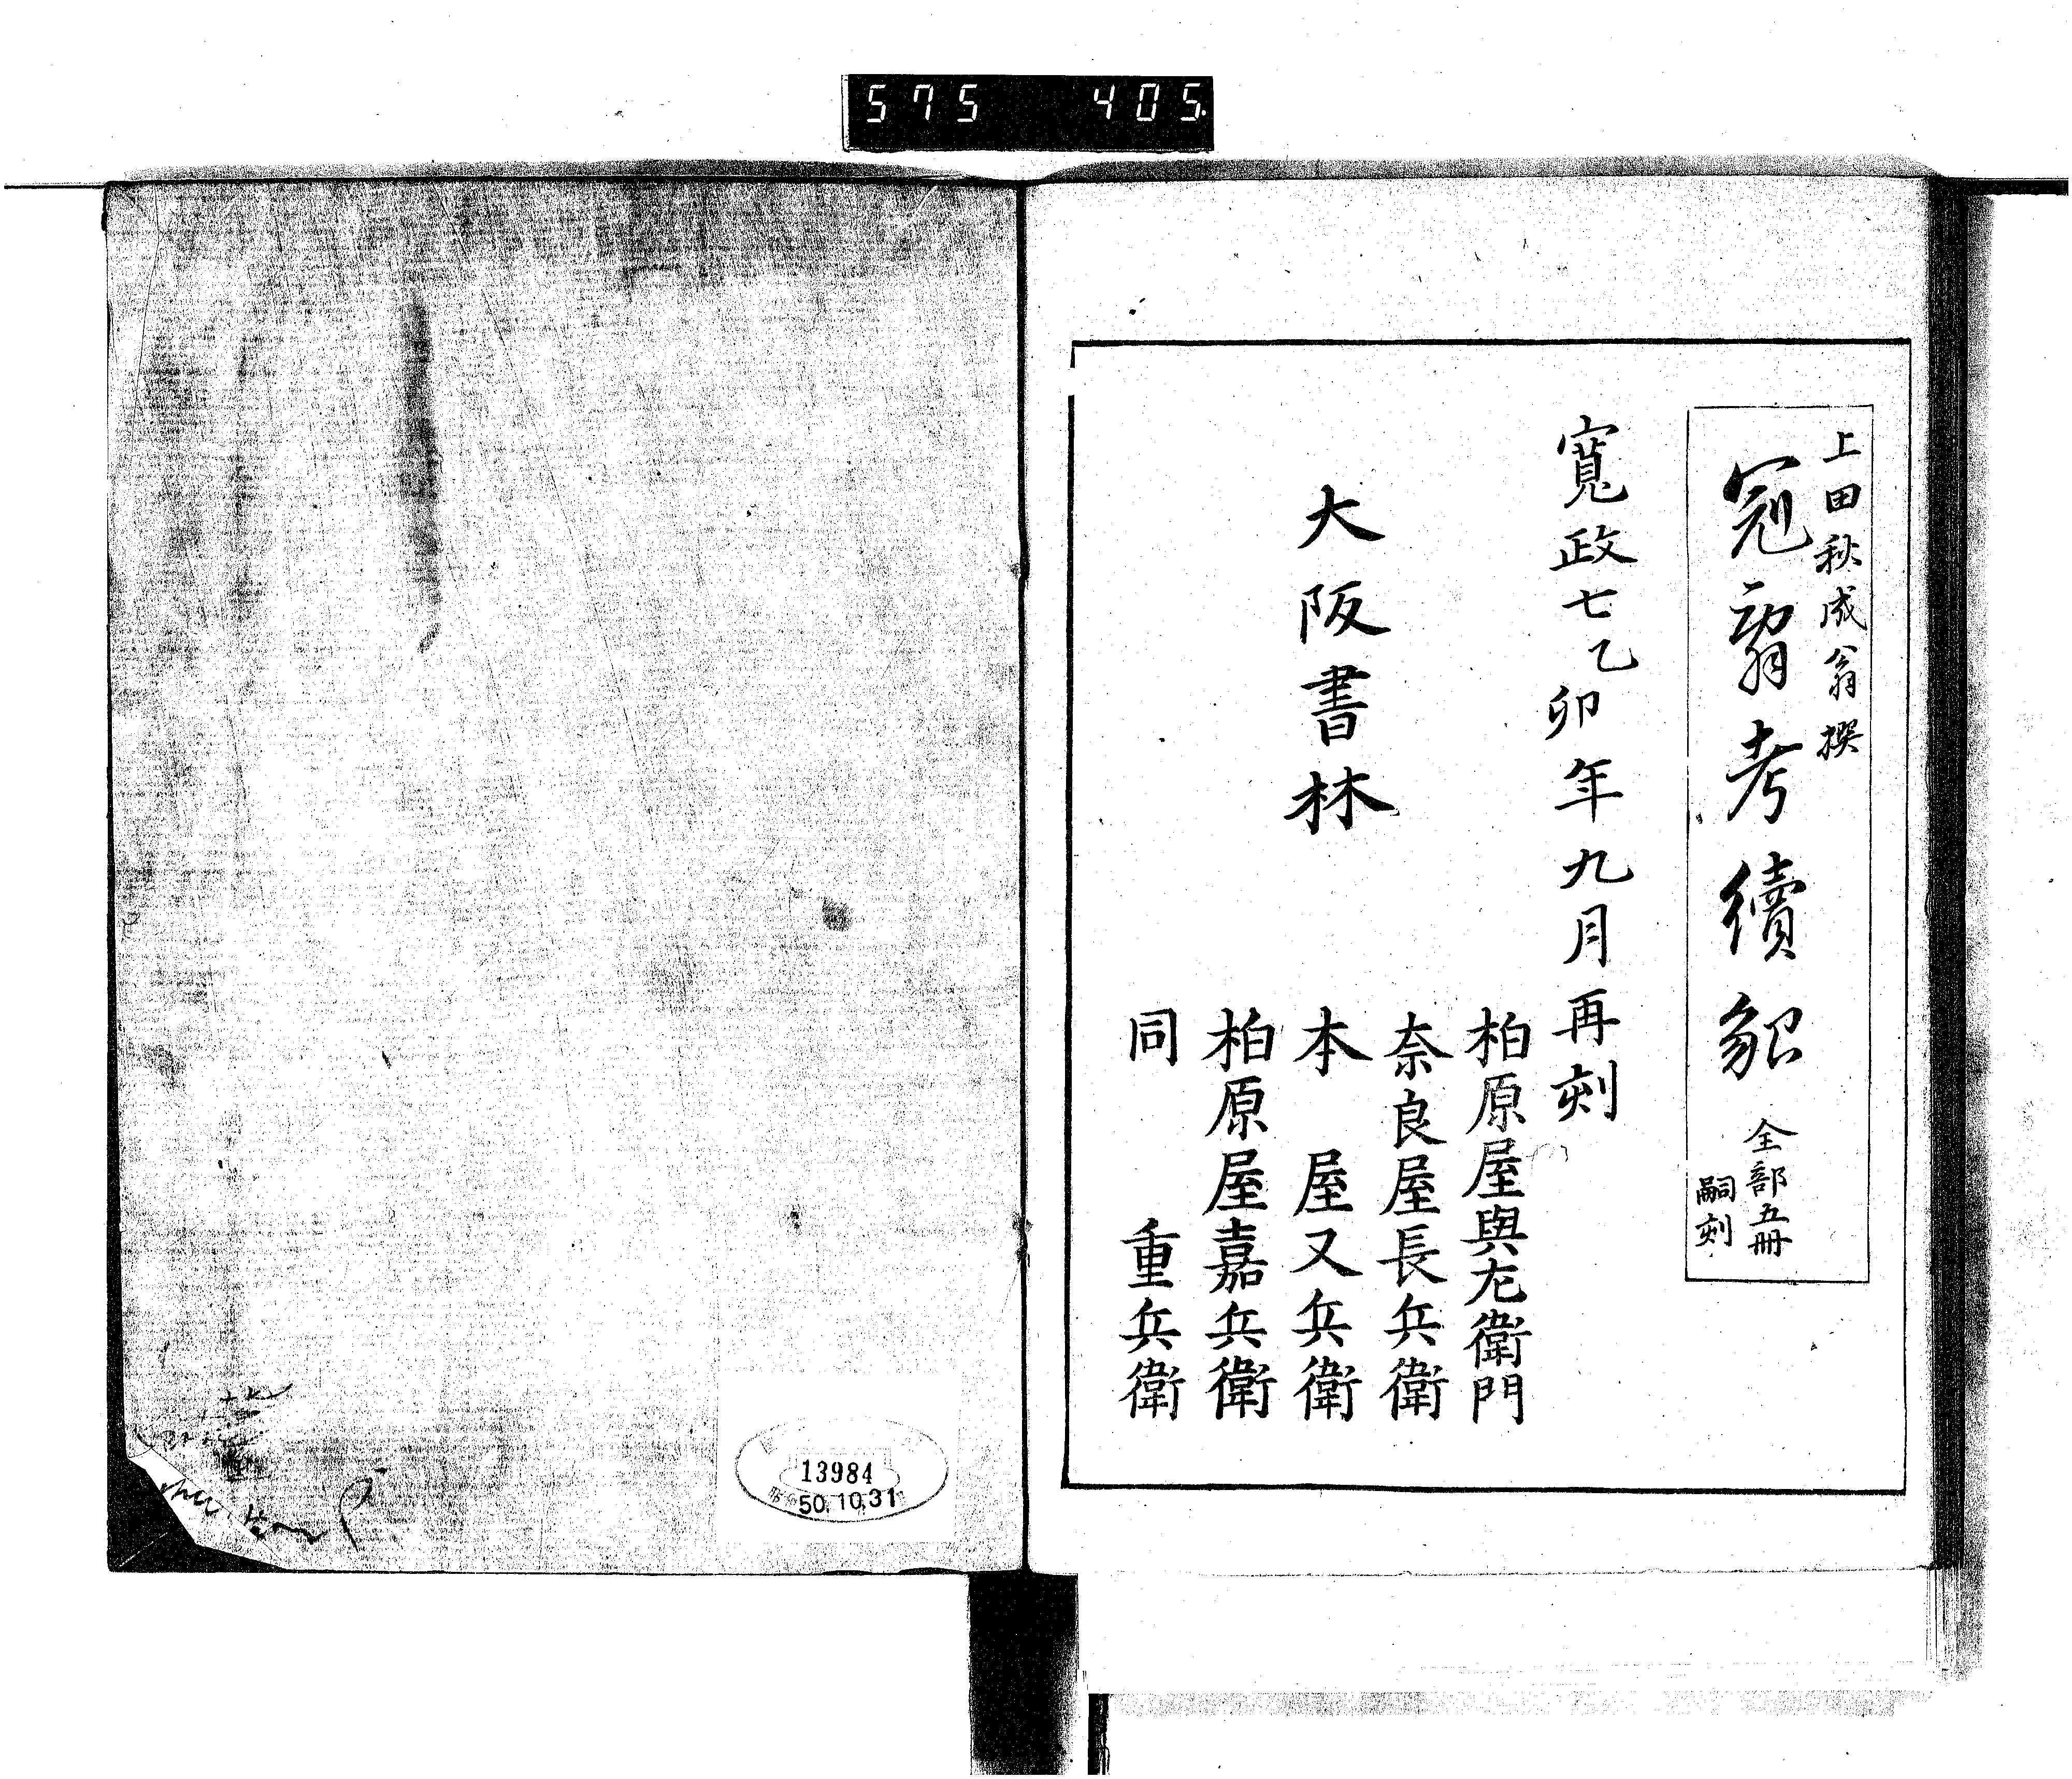 575 405
上田秋成翁撰
冠辭考續貂
全部五冊
嗣刻
寬政七乙卯年九月再刻
大阪書林
柏原屋與左衛門
奈良屋長兵衛
本屋又兵衛
柏原屋嘉兵衛
同 重兵衛
13984
50.10.31